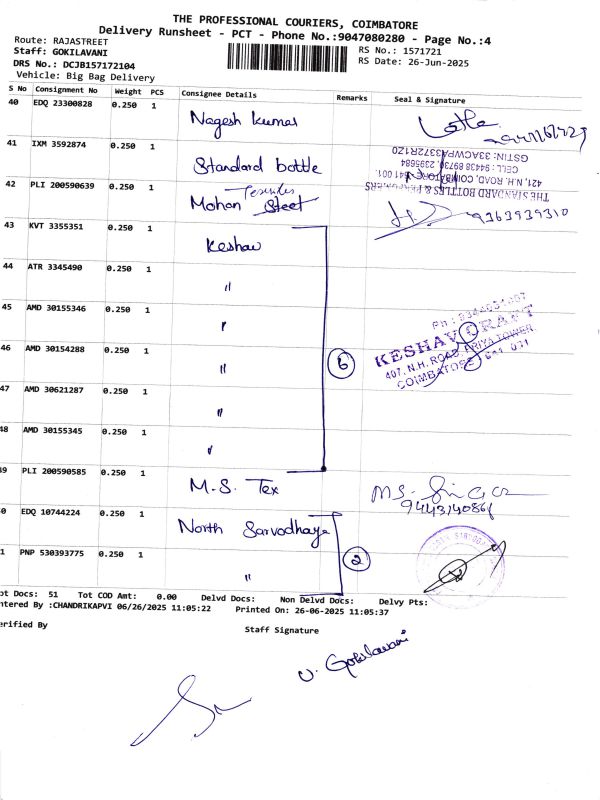 THE PROFESSIONAL COURIERS, COIMBATORE
Delivery Runsheet - PCT - Phone No.:9047080280 - Page No.:4
Route: RAJASTREET
RS No.: 1571721
Staff: GOKILAVANI
RS Date: 26-Jun-2025
DRS No.: DCJB157172104
Vehicle: Big Bag Delivery
S No Consignment No Weight PCS Consignee Details Remarks Seal & Signature
40 EDQ 23300828 0.250 1 Nagesh kumar
41 IXM 3592874 0.250 1 Standard bottle
THE STANDARD BOTTLES & PERFUMERS
421, N.H. ROAD, COIMBATORE-641 001.
GSTIN: 33ACWPA3372R1Z0
42 PLI 200590639 0.250 1 Mohan Street 9363939310
43 KVT 3355351 0.250 1 Keshav
44 ATR 3345490 0.250 1 "
45 AMD 30155346 0.250 1 "
46 AMD 30154288 0.250 1 " 6
KESHAV CRAFT
407, N.H. ROAD, ARIYA TOWER
COIMBATORE 641 001
47 AMD 30621287 0.250 1 "
48 AMD 30155345 0.250 1 "
49 PLI 200590585 0.250 1 M.S. Tex MS.
0 EDQ 10744224 0.250 1 North Sarvodhaya
1 PNP 530393775 0.250 1 " 2
ot Docs: 51 Tot COD Amt: 0.00 Delvd Docs: Non Delvd Docs: Delvy Pts:
ntered By :CHANDRIKAPVI 06/26/2025 11:05:22 Printed On: 26-06-2025 11:05:37
erified By Staff Signature
V. Gokilavani